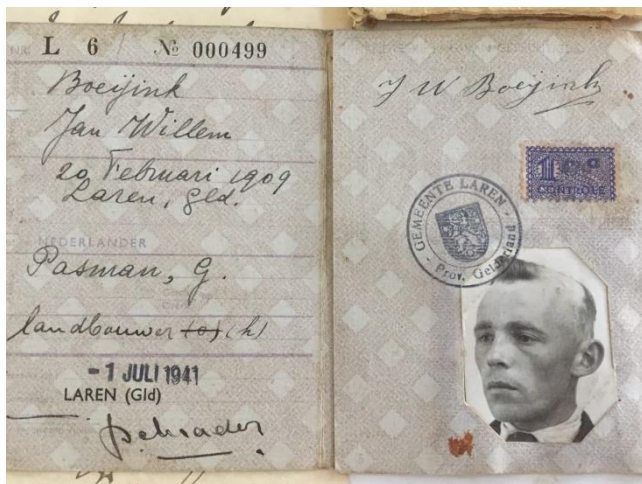 NR. L 6 / № 000499
Boeijink
Jan Willem
20 Februari 1909
Laren, Geld.
NEDERLANDER
Pasman, G.
landbouwer (h)
-1 JULI 1941
LAREN (Gld)
Schrader
J W Boeijink
1
CONTRÔLE
GEMEENTE LAREN
- Prov. Gelderland -